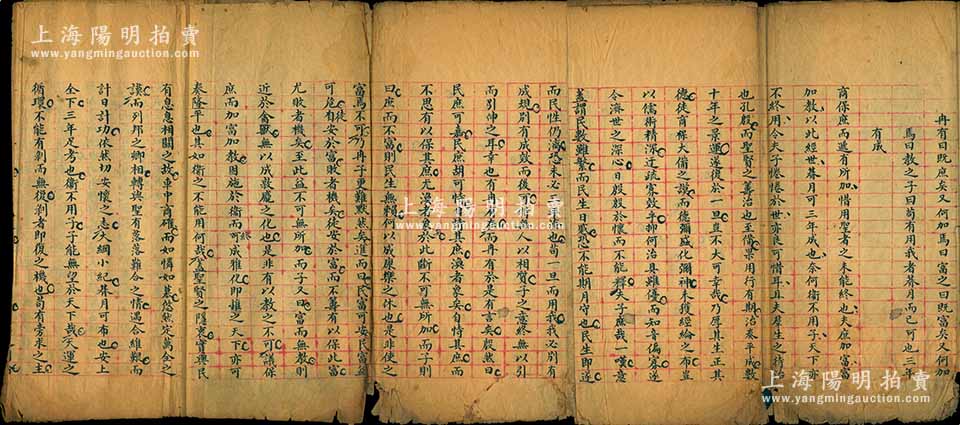 冉有曰既庶矣又何加焉曰富之曰既富矣又何加
焉曰教之子曰苟有用我者朞月而已可也三年
有成
商保庶而遞有所加惜用聖者之未能終也夫庶加富富
加教以此經世朞月可三年成也奈何衛不用子天下亦
不終用令夫子惓惓於世亦良可惜耳且夫羣生之待治
也孔殷而聖賢之籌治也至備果用行有期治泰平成數
十年之景運遂復於一旦豈不大可幸哉乃厚其生正其
德徒商穪大備之謨而德彌盛化彌神未獲經綸之布豈
以儒術精深迂疏寡效乎抑何治具雖優而知音偏寡遂
令濟世之深心日殷殷於懷而不能釋夫子庶哉一嘆意
蓋謂民數雖繁而民生日蹙恐不能期月守也民生即遂
而民性仍漓恐未必三年成也苟一旦而用我我必別有
成規別有成效而後可與人以相質子之意終無以引
而引伸之耳幸也有冉有僕而冉有於是有言矣殷然曰
民庶可嘉民庶胡可恃特其庶淚者衆矣自恃其庶而
不思有以保其庶尤淚者衆於此斷不可無所加而子則
曰庶而不富則民生無賴何以成康樂之休也是非使之
富焉不可冉子更難默然矣遽而曰民富可安民富益
可危徒自安於富敗者機矣徒安於富而不籌有以保此富
尤敗者機矣至此益不可無所加而子又曰富而無教則
近於禽獸無以成敦龐之化也是非有以教之不可議保
庶而加富加教困施於衛而可成雍化即推之天下亦可
泰隆平也其如衛之不能用何哉終
有息息相關之故車中商確而如懼如慕疑定萬全之
謨而列邦之卿相轉與聖有落落難合之情遇合維艱而
計日計功依然切安懷之志久綱小紀朞月可布也安上
全下三年足考也衛不用子子能無望於天下哉夫運之
循環不能有剝而無復剝者即復之機也苟有旁求之主
上海陽明拍賣
www.yangmingauction.com
上海陽明拍賣
www.yangmingauction.com
上海陽明拍賣
www.yangmingauction.com